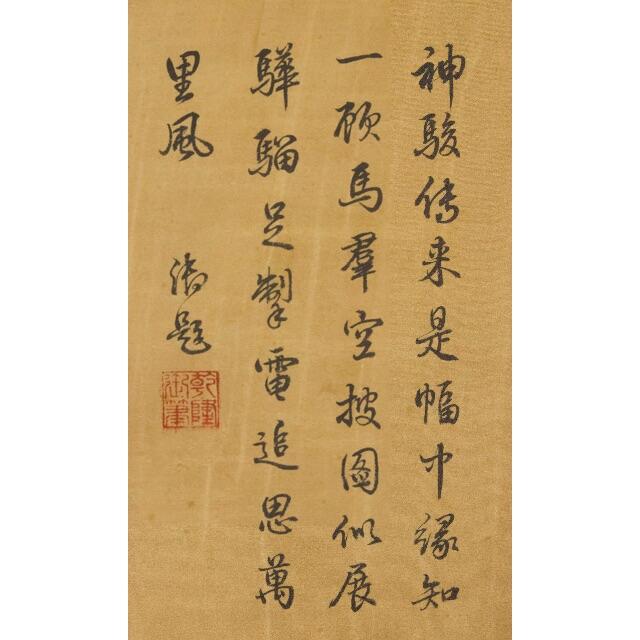 神駿傳来是幅中緣知
一顧馬羣空披圖似展
驊騮足掣電追思萬
里風
御題
乾隆
御筆